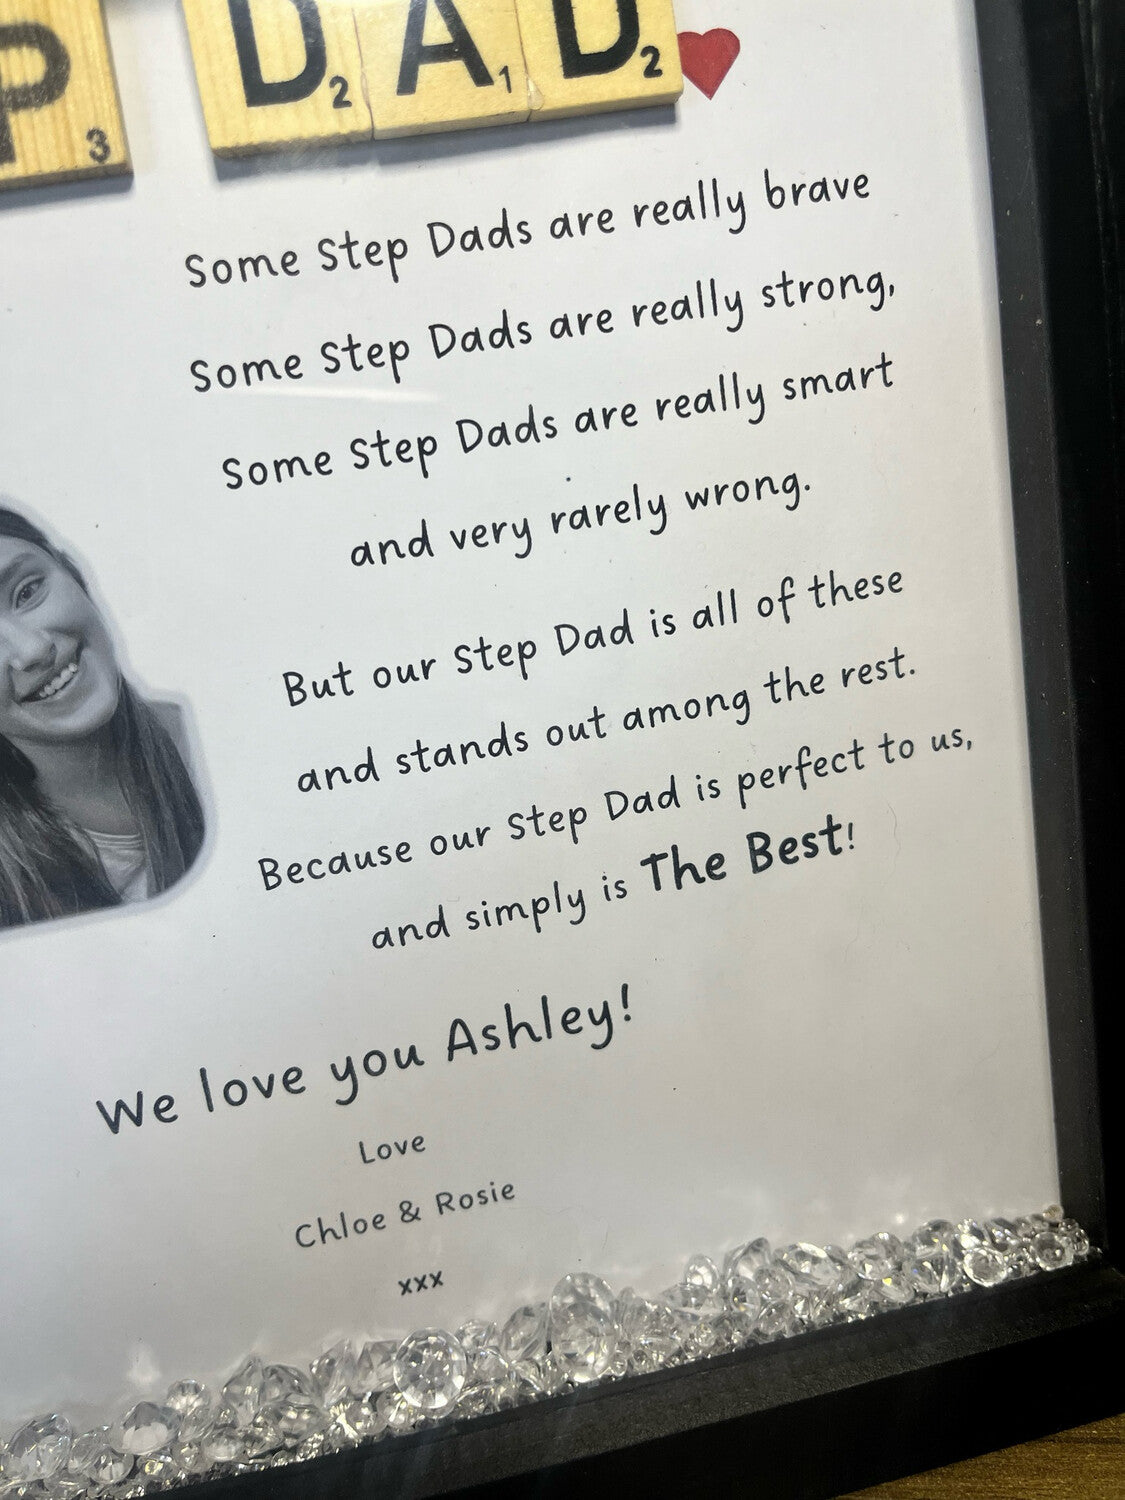 P3 D2 A1 D2
Some Step Dads are really brave
Some Step Dads are really strong,
Some Step Dads are really smart
and very rarely wrong.
But our Step Dad is all of these
and stands out among the rest.
Because our Step Dad is perfect to us,
and simply is The Best!
We love you Ashley!
Love
Chloe & Rosie
xxx